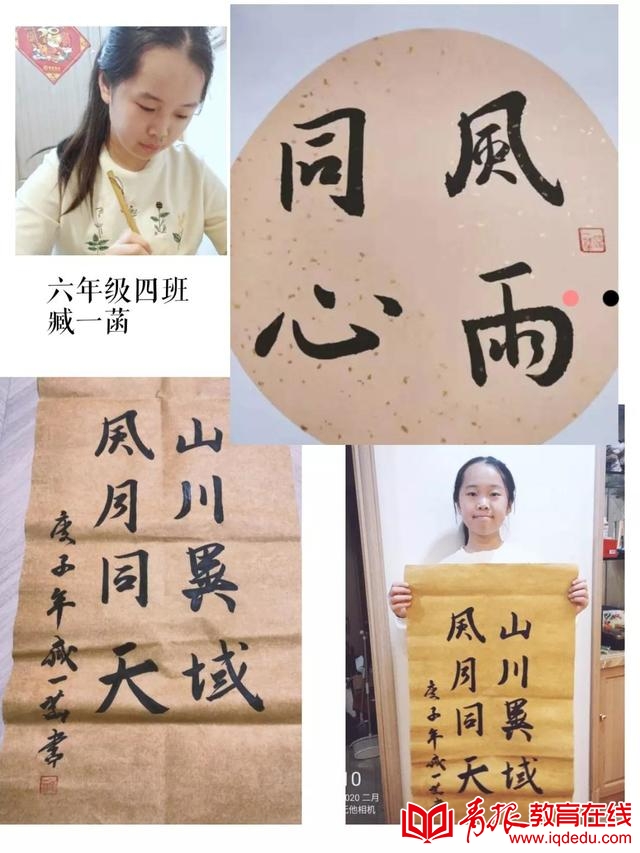 風雨
同心
六年级四班
臧一菡
山川異域
風月同天
庚子年臧一菡書
山川異域
風月同天
庚子年臧一菡
10
2020 二月
无他相机
青报教育在线
www.iqdedu.com